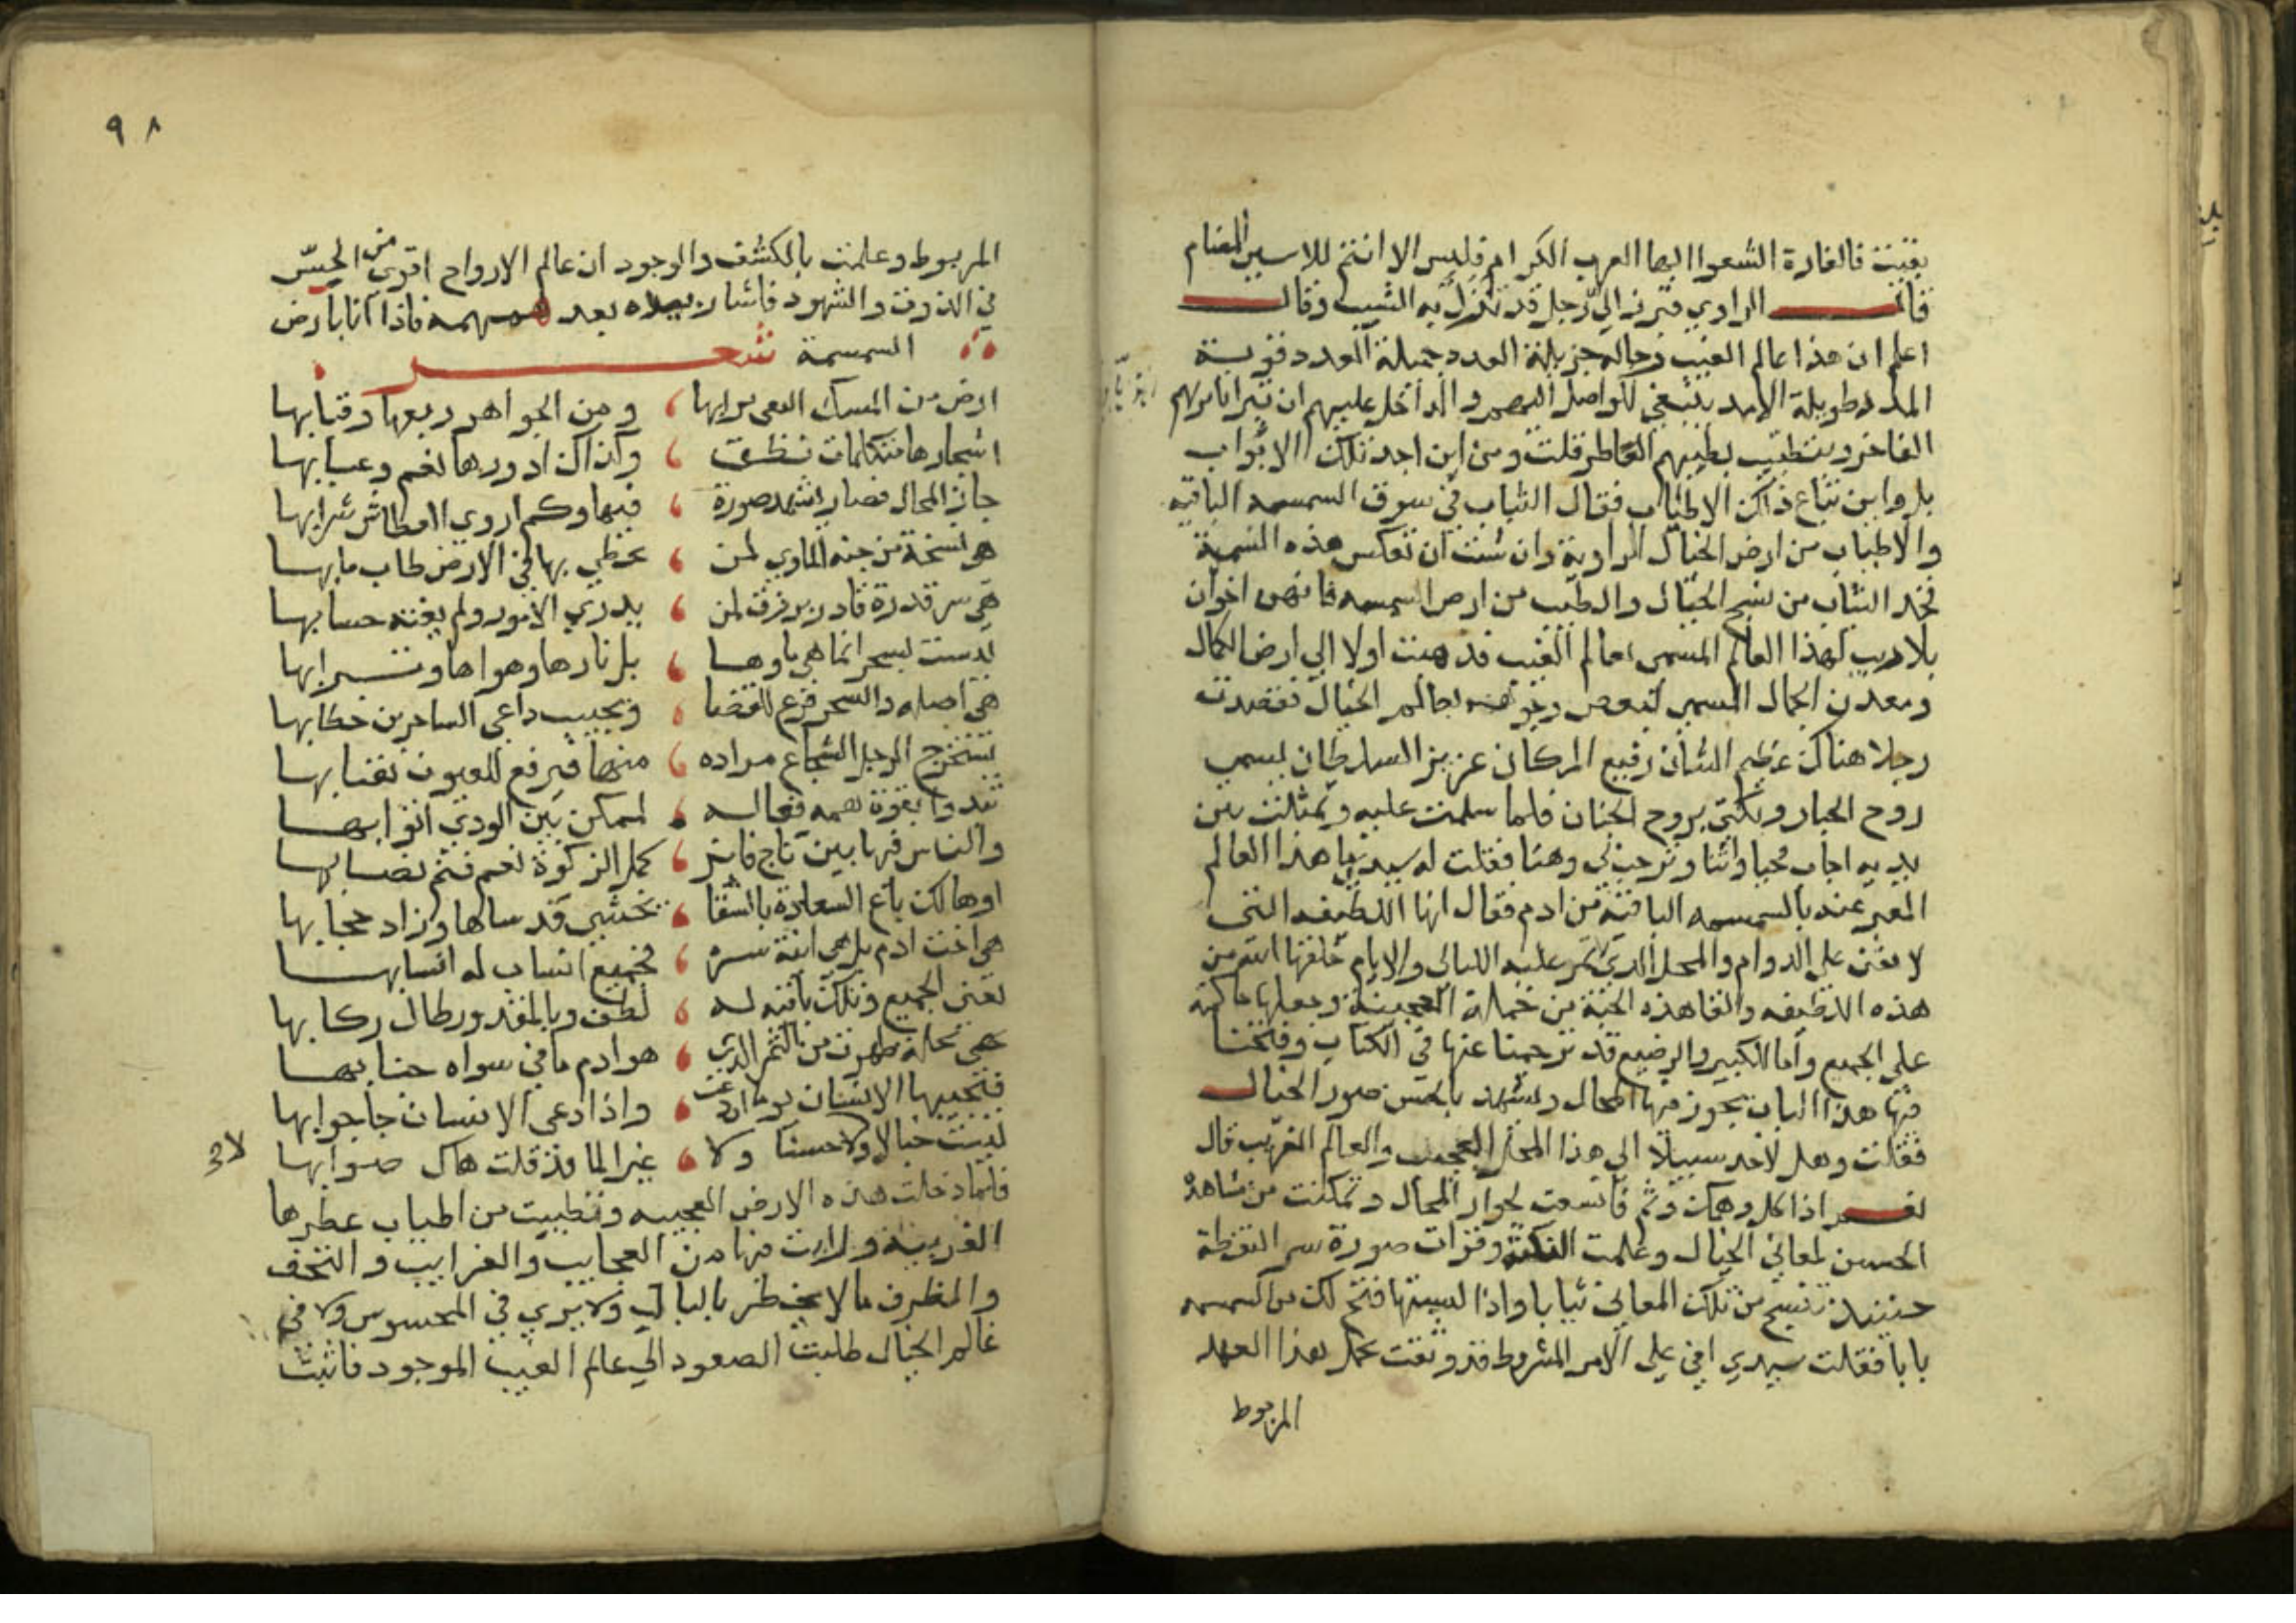 بقيت فالغارة الشعوا ايها العرب الكرام فليس الا انتم للاسير المضام
قال الراوي فبرز الي رجل قد نزل به الشيب وقال
اعلم ان هذا عالم الغيب رجاله جزيلة العدد جميلة العدد قوية
المدد طويلة الامد ينبغي للواصل اليهم والداخل عليهم ان يتزيا بزيهم
الفاخر ويتطيب بطيبهم العاطر قلت ومن اين اجد تلك الاثواب
بل واين تباع ذلك الاطياب فقال الثياب في سوق السمسمه الباقيه
والاطياب من ارض الخيال الراوية وان شئت ان تعكس هذه التسمية
فخذ الثياب من نسج الخيال والطيب من ارض السمسمه فانهن اخوان
بلا ريب لهذا العالم المسمي بعالم الغيب فذهبت اولا الي ارض الكمال
ومعدن الجمال المسمي لبعض وجوهه بعالم الخيال فقصدت
رجلا هناك عظيم الشان رفيع المكان عزيز السلطان يسمي
روح الخيال ويكني بروح الجنان فلما سلمت عليه وتمثلت بين
يديه اجاب محيا واثنا وترحب بي وهنا فقلت له سيدي ما هذا العالم
المعبر عنه بالسمسمه الباقية من ادم فقال انها اللطيفه التي
لا تفنى علي الدوام والمحل الذي لا تمر عليه الليالي والايام خلقها الله من
هذه اللطيفه وانتقا هذه الحبة من جملة العجينة وجعلها حاكمه
علي الجميع واما الكبير والرضيع قد ترجمنا عنها في الكتاب وفتحنا
فيها هذا الباب يجوز فيها المحال ويشهد بالحس صور الخيال
فقلت وهل لاخد سبيلا الي هذا المحل العجيب والعالم الغريب قال
نعم اذا كمل وهمك وتم فاتسعت لجواز المحال وتمكنت من مشاهدة
الحسن لمعاني الخيال وعلمت النكتة وقرات صورة سر النقطة
حينئذ تنسج من تلك المعاني ثيابا واذا لبستها فتح لك من السمسمه
بابا فقلت سيدي اني علي الامر المشروط قد وثقت بحمل هذا العهد
المربوط
٩٨
المربوط وعلمت بالكشف والوجود ان عالم الارواح اقوي من الحس
في الذوق والشهود فاشار بيده بعد همهمه فاذا انا بارض
السمسمة شعر
ارض من المسك النقي ترابها ومن الجواهر ربعها وقبابها
اشجارها متكلمات نطق وكذاك ادورها نعم وعتابها
جاز المحال فصار يشهد صورة فيها وكم اروي العطاش شرابها
هي نسخة من جنة الماوي لمن يحظي بها في الارض طاب مابها
هي سر قدرة قادر برزت لمن يدري الامور ولم يفته حسابها
ليست بسحر انما هي ماوها بل نارها وهواها وترابها
هي اصله والسحر فرع للقضا ويجيب داعي الساحرين خطابها
يستخرج الرجل الشجاع مراده منها فيرفع للعيون نقابها
تبدو بقوة همه فعاله لممكن بين الوري اثوابها
والناس فيها بين ناج فايز كمل الزكوة نعم فتم نصابها
او هالك باع السعادة بالشقا بخسيس قد ساها وزاد حجابها
هي اخت ادم بل هي ابنة سره فجميع انساب له انسابها
تفنى الجميع وتلك باقيه له لطف وبالمقدور طال ركابها
هي نخلة ظهرت من الثمر الذي هو ادم ما في سواه جنابها
فتجيبها الانسان يوما ان دعت واذا دعي الانسان جا جوابها
ليست خيالا ولا حسا ولا غير الما قد قلت هاك صوابها
فلما دخلت هذه الارض العجيبه وتطيبت من اطياب عطرها
الغريبة ورايت فيها من العجايب والغرايب والتحف
والطرف ما لا يخطر بالبال ولا يري في المحسوس ولا في
عالم الخيال طلبت الصعود الي عالم الغيب الموجود فاتيت